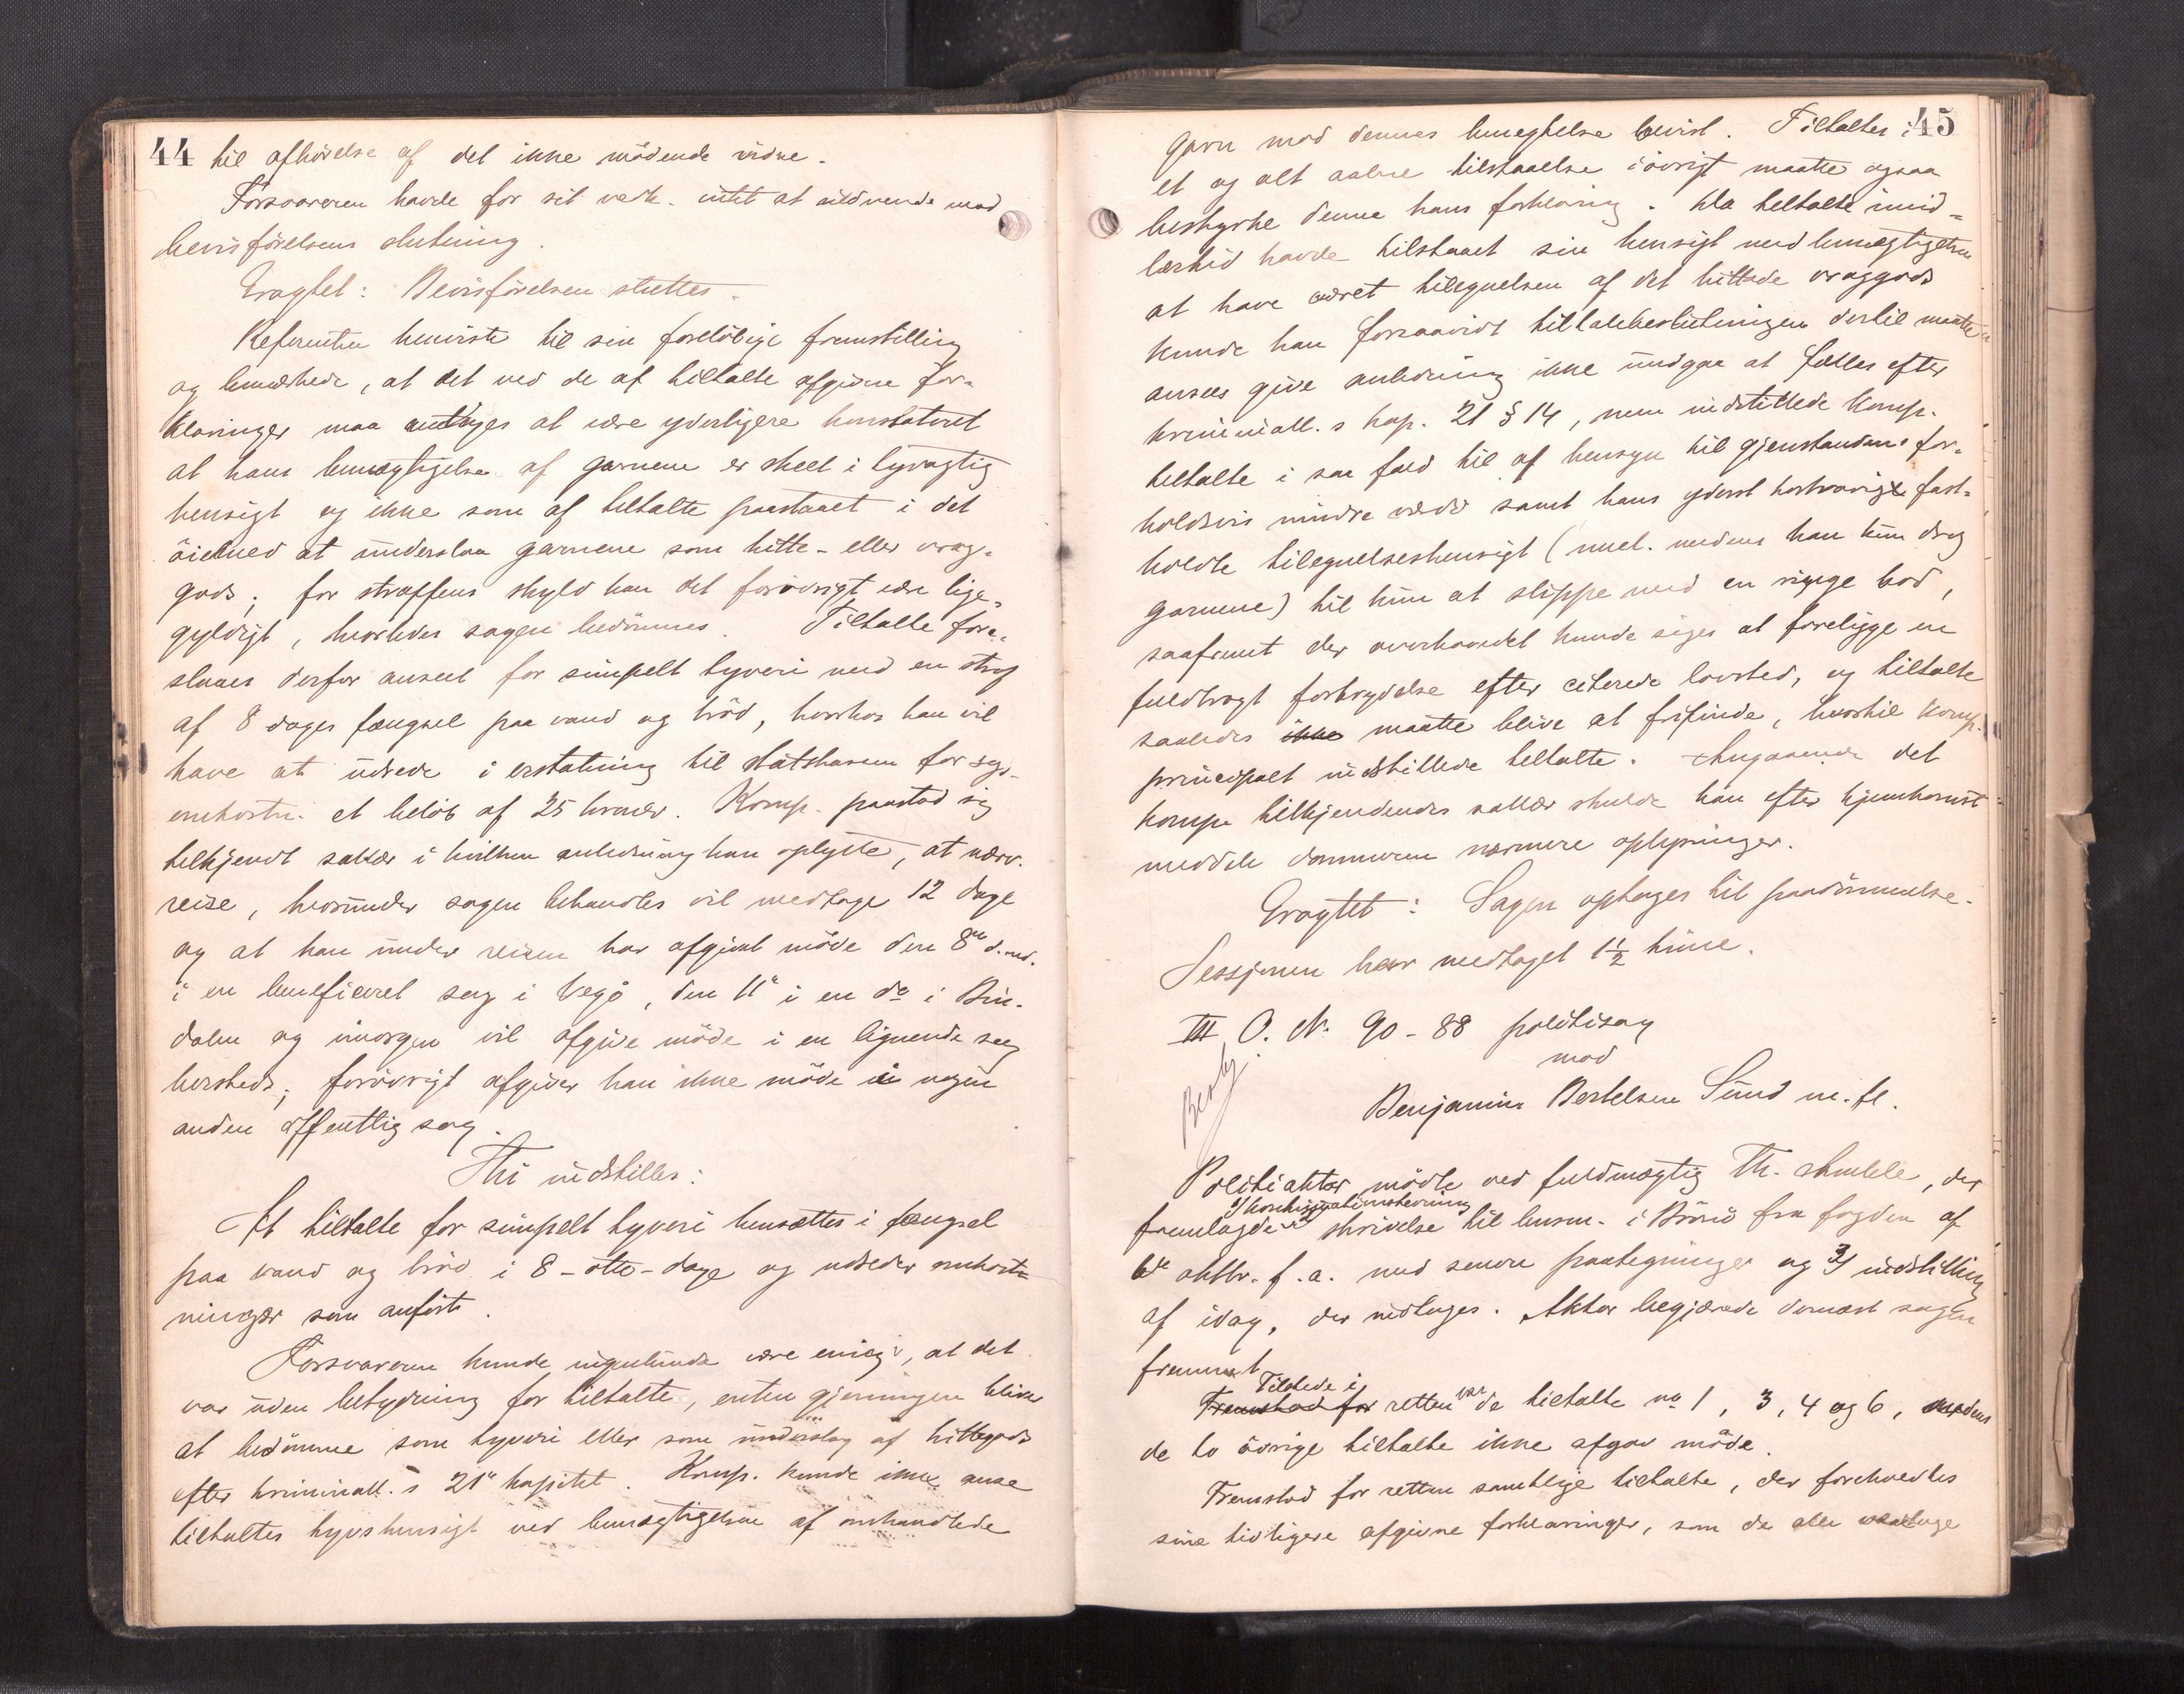 44 til afhörelse af det ikke mödende vidne.
Forsvareren havde for sit vedk. intet at indvende mod
bevisförelsens slutning.
Eragtet: Bevisförelsen sluttes.
Referenten henviste til sin foreløbige fremstilling
og bemærkede, at det ved de af tiltalte afgivne for-
klaringer maa antages at være yderligere konstateret
at hans bemægtigelse af garnene er skeet i tyvagtig
hensigt og ikke som af tiltalte paastaaet i det
öiemed at underslaa garnene som hitte- eller vrag-
gods; for straffens skyld kan det forövrigt være lige-
gyldigt, hvorledes sagen bedömmes. Tiltalte fore-
slaaes derfor anseet for simpelt tyveri med en straf
af 8 dages fængsel paa vand og bröd, hvorhos han vil
have at udrede i erstatning til statskassen for sags-
omkostn. et belöb af 25 kroner. Komp. paastod sig
tilkjendt sallær i hvilken anledning han oplyste, at nærv.
reise, hvorunder sagen behandles vil medtage 12 dage
og at han under reisen har afgivet möde den 8de d. md.
i en beneficeret sag i Vegö, den 11te i en do i Bin-
dalen og imorgen vil afgive möde i en lignende sag
hersteds; forövrigt afgiver han ikke möde i nogen
anden offentlig sag.
Thi indstilles:
At tiltalte for simpelt tyveri hensættes i fængsel
paa vand og bröd i 8 - otte - dage og udreder omkost-
ninger som anfört.
Forsvareren kunde ingenlunde være enig i, at det
var uden betydning for tiltalte, enten gjerningen bliver
at bedömme som tyveri eller som underslag af hittegods
efter kriminall.s 21de kapitel. Komp. kunde ikke anse
tiltaltes tyvshensigt ved bemægtigelsen af omhandlede
45
garn mod dennes benegtelse bevist. Tiltaltes i
et og alt aabne tilstaaelse iövrigt maatte ogsaa
bestyrke denne hans forklaring. Da tiltalte imid-
lertid havde tilstaaet sin hensigt med bemægtigelsen
at have været tilegnelsen af det hittede vraggods
kunde han forsaavidt tiltalebeslutningen dertil maatte
ansees give anledning ikke undgaa at fælles efter
kriminall.s kap. 21 § 14, men indstillede komp.
tiltalte i saa fald til af hensyn til gjenstandens for-
holdsvis mindre værdi samt hans yderst kortvarige fast-
holdte tilegnelseshensigt (nml. medens han kun drog
garnene) til kun at slippe med en ringe bod,
saafremt der overhovedet kunde siges at foreligge en
fuldbragt forbrydelse efter citerede lovsted, og tiltalte
saaledes ikke maatte blive at frifinde, hvortil komp.
principalt indstillede tiltalte. Angaaende det
komp. tilkjendendes sallær skulde han efter hjemkomst
meddele dommeren nærmere oplysninger.
Eragtet: Sagen optages til paadömmelse.
Sessjonen har medtaget 1½ time.
III O. N. 90-88 politisag
mod
Benjamin Bertelsen Sund m. fl.
Politiaktor mödte ved fuldmægtig Th. , der
fremlagde 1/ 2/ skrivelse til lensm. i Brönö fra fogden af
6te oktbr. f. a. med senere paategninger og 3/ indstilling
af idag, der indtages. Aktor begjærede dernæst sagen
fremmet
Tilstede i
Fremstod for retten var de tiltalte no 1, 3, 4 og 6, medens
de to övrige tiltalte ikke afgav möde.
Fremstod for retten samtlige tiltalte, der foreholdtes
sine tidligere afgivne forklaringer, som de alle vedtage